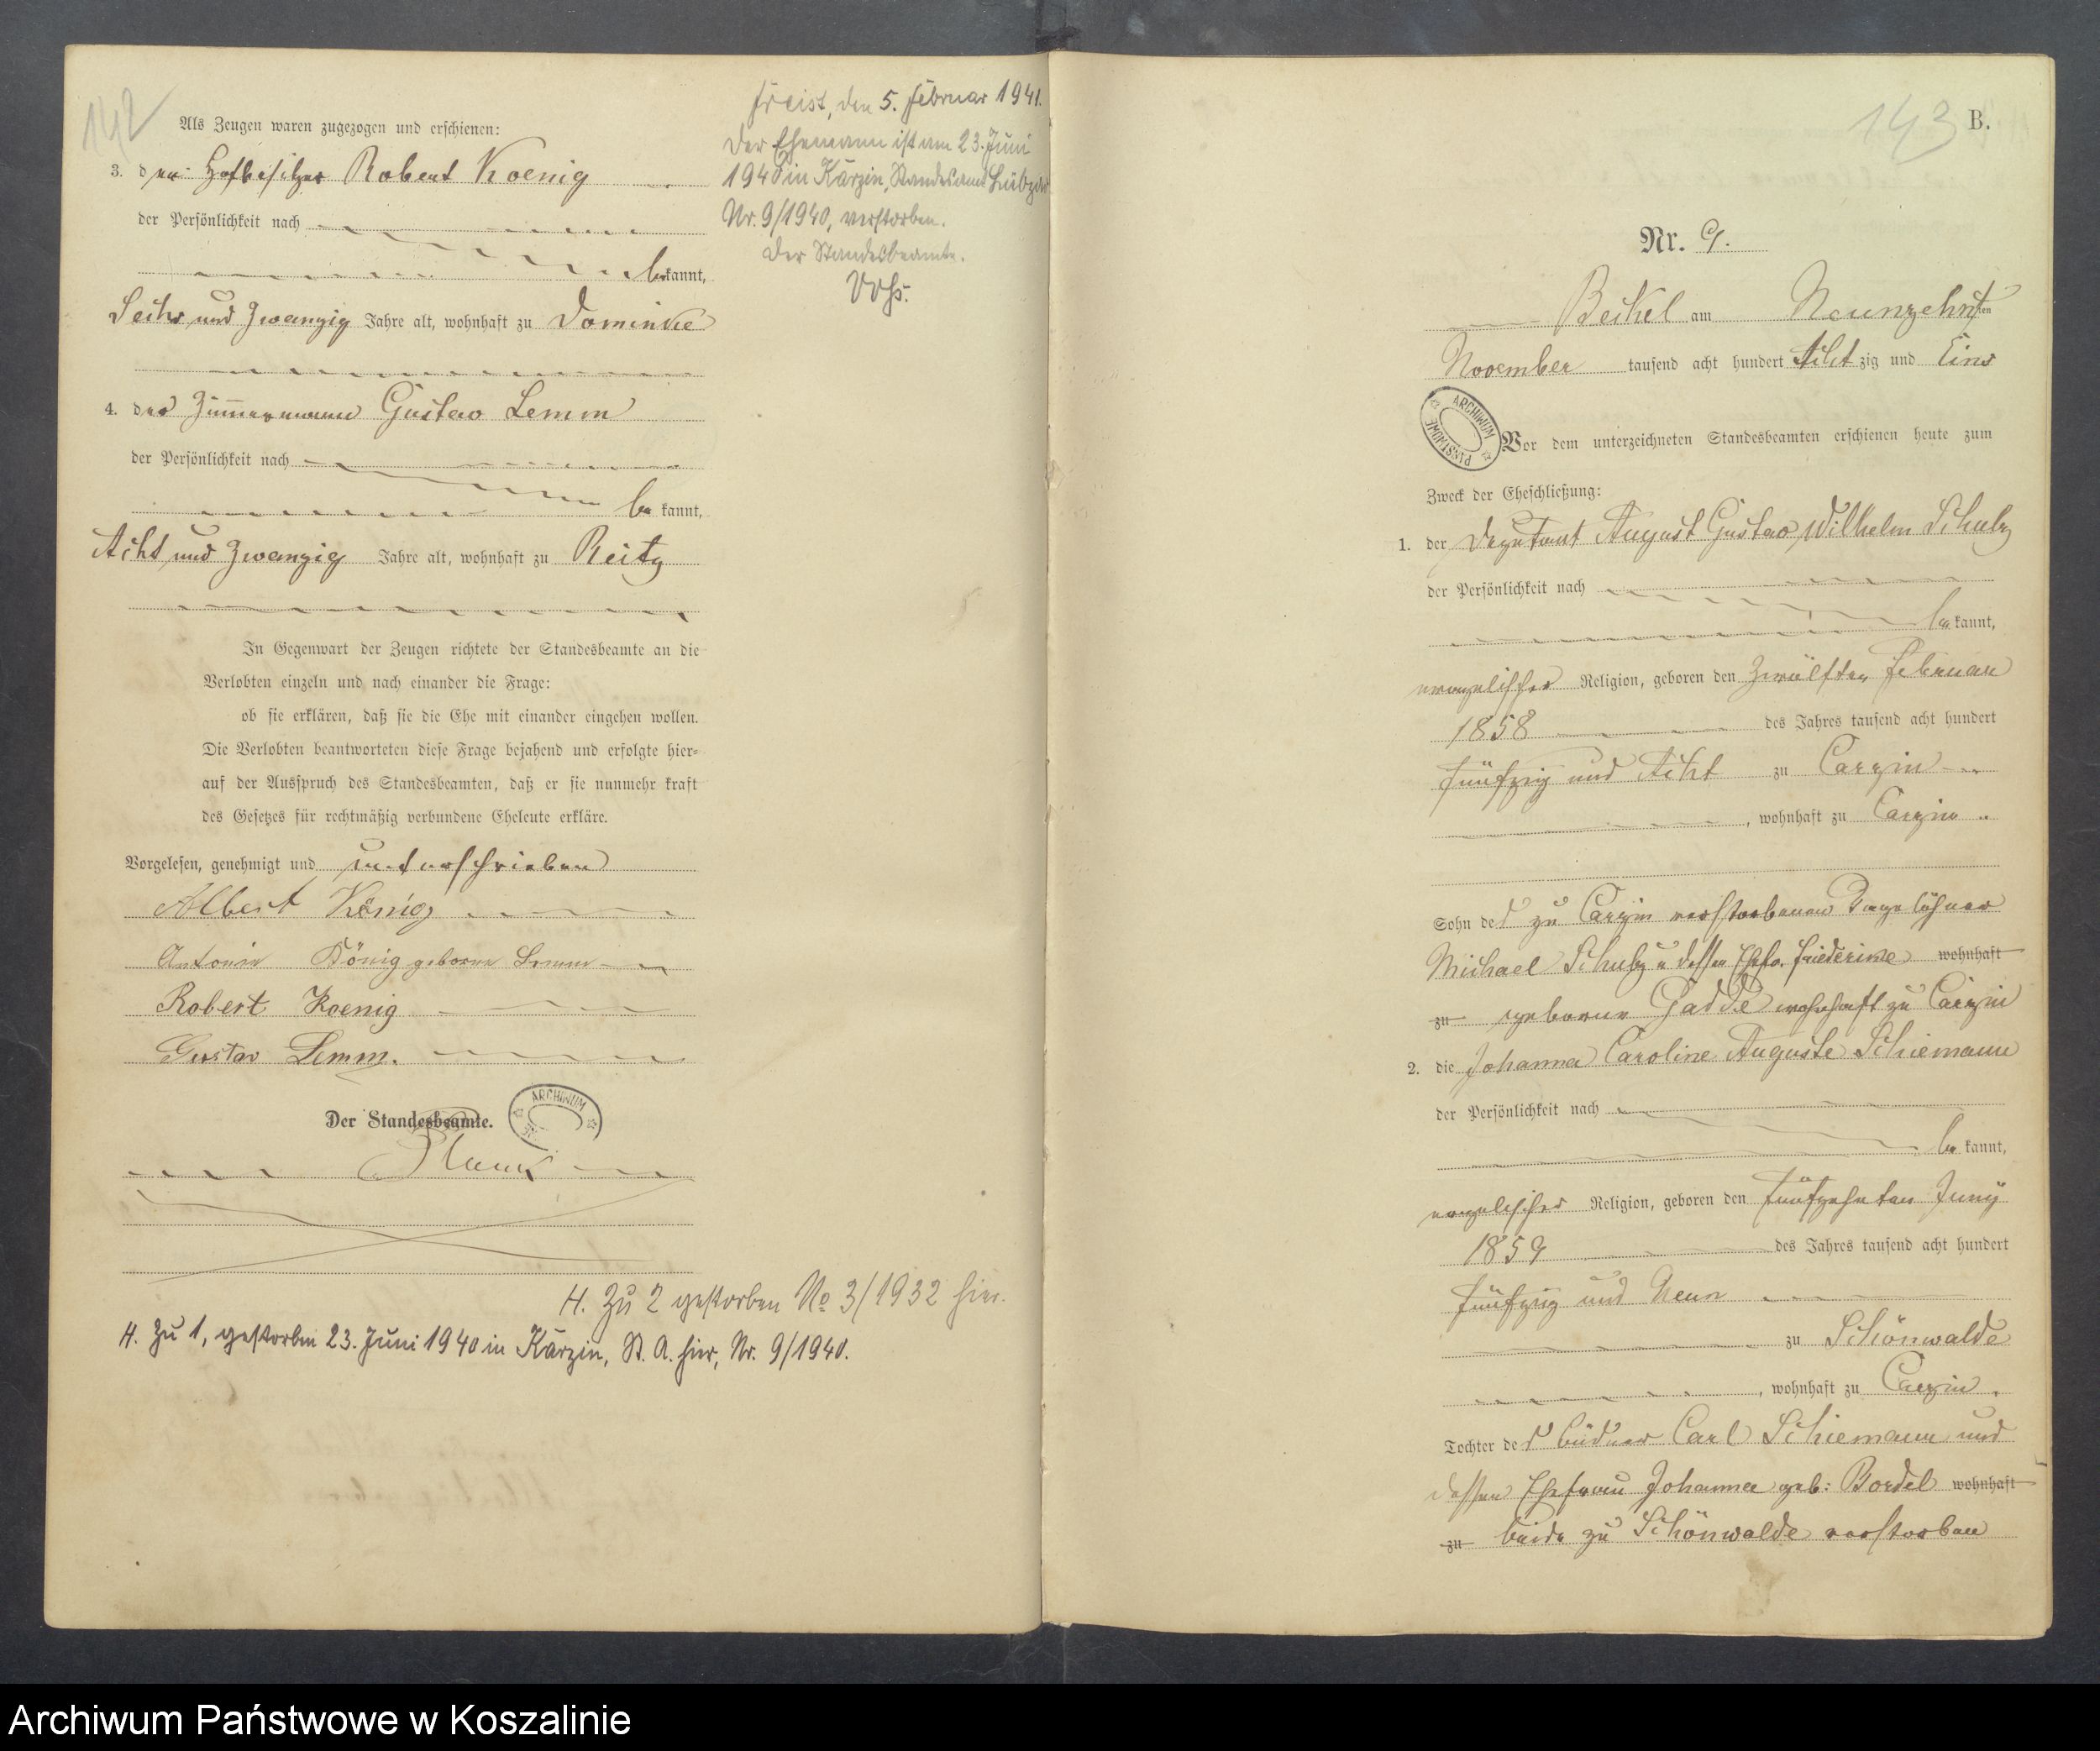 142
Als Zeugen waren zugezogen und erschienen:
3. der Hofbesitzer Robert Koenig
der Persönlichkeit nach
bekannt,
Sechs und Zwanzig Jahre alt, wohnhaft zu Dominke
4. der Zimmermann Gustav Lemm
der Persönlichkeit nach
be kannt,
Acht und Zwanzig Jahre alt, wohnhaft zu Reitz
In Gegenwart der Zeugen richtete der Standesbeamte an die
Verlobten einzeln und nach einander die Frage:
ob sie erklären, daß sie die Ehe mit einander eingehen wollen.
Die Verlobten beantworteten diese Frage bejahend und erfolgte hier-
auf der Ausspruch des Standesbeamten, daß er sie nunmehr kraft
des Gesetzes für rechtmäßig verbundene Eheleute erkläre.
Vorgelesen, genehmigt und unterschrieben
Albert König
Antonie König geborne Lemm
Robert Koenig
Gustav Lemm.
Der Standesbeamte.
ARCHIWUM
H. Zu 2 gestorben No 3/1932 hier.
H. Zu 1, gestorben 23. Juni 1940 in Karzin, St. A. hier, Nr. 9/1940.
Freist, den 5. Februar 1941.
Der Ehemann ist am 23. Juni
1940 in Karzin, Standesamt Lübzow
Nr. 9/1940, verstorben.
Der Standesbeamte.
143 B.
Nr. 9.
Beckel am Neunzehnten
November tausend acht hundert Achtzig und Eins
ARCHIWUM PAŃSTWOWE
Vor dem unterzeichneten Standesbeamten erschienen heute zum
Zweck der Eheschließung:
1. der Deputant August Gustav Wilhelm Schulz
der Persönlichkeit nach
be kannt,
evangelischer Religion, geboren den Zwölften Februar
1858 des Jahres tausend acht hundert
fünfzig und Acht zu Carzin
, wohnhaft zu Carzin
Sohn des zu Carzin verstorbenen Tagelöhner
Michael Schulz u dessen Ehefr. Friederike wohnhaft
zu geborne Gadde wohnhaft zu Carzin
2. die Johanna Caroline Auguste Schiemann
der Persönlichkeit nach
be kannt,
evangelischer Religion, geboren den fünfzehnten Juny
1859 des Jahres tausend acht hundert
fünfzig und Neun
zu Schönwalde
, wohnhaft zu Carzin
Tochter des Büdner Carl Schiemann und
dessen Ehefrau Johanna geb: Bordel wohnhaft
zu beide zu Schönwalde verstorben
Archiwum Państwowe w Koszalinie